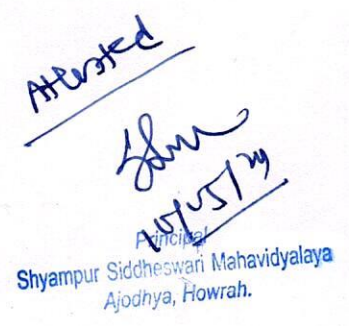 Attested
10/05/24
Principal
Shyampur Siddheswari Mahavidyalaya
Ajodhya, Howrah.